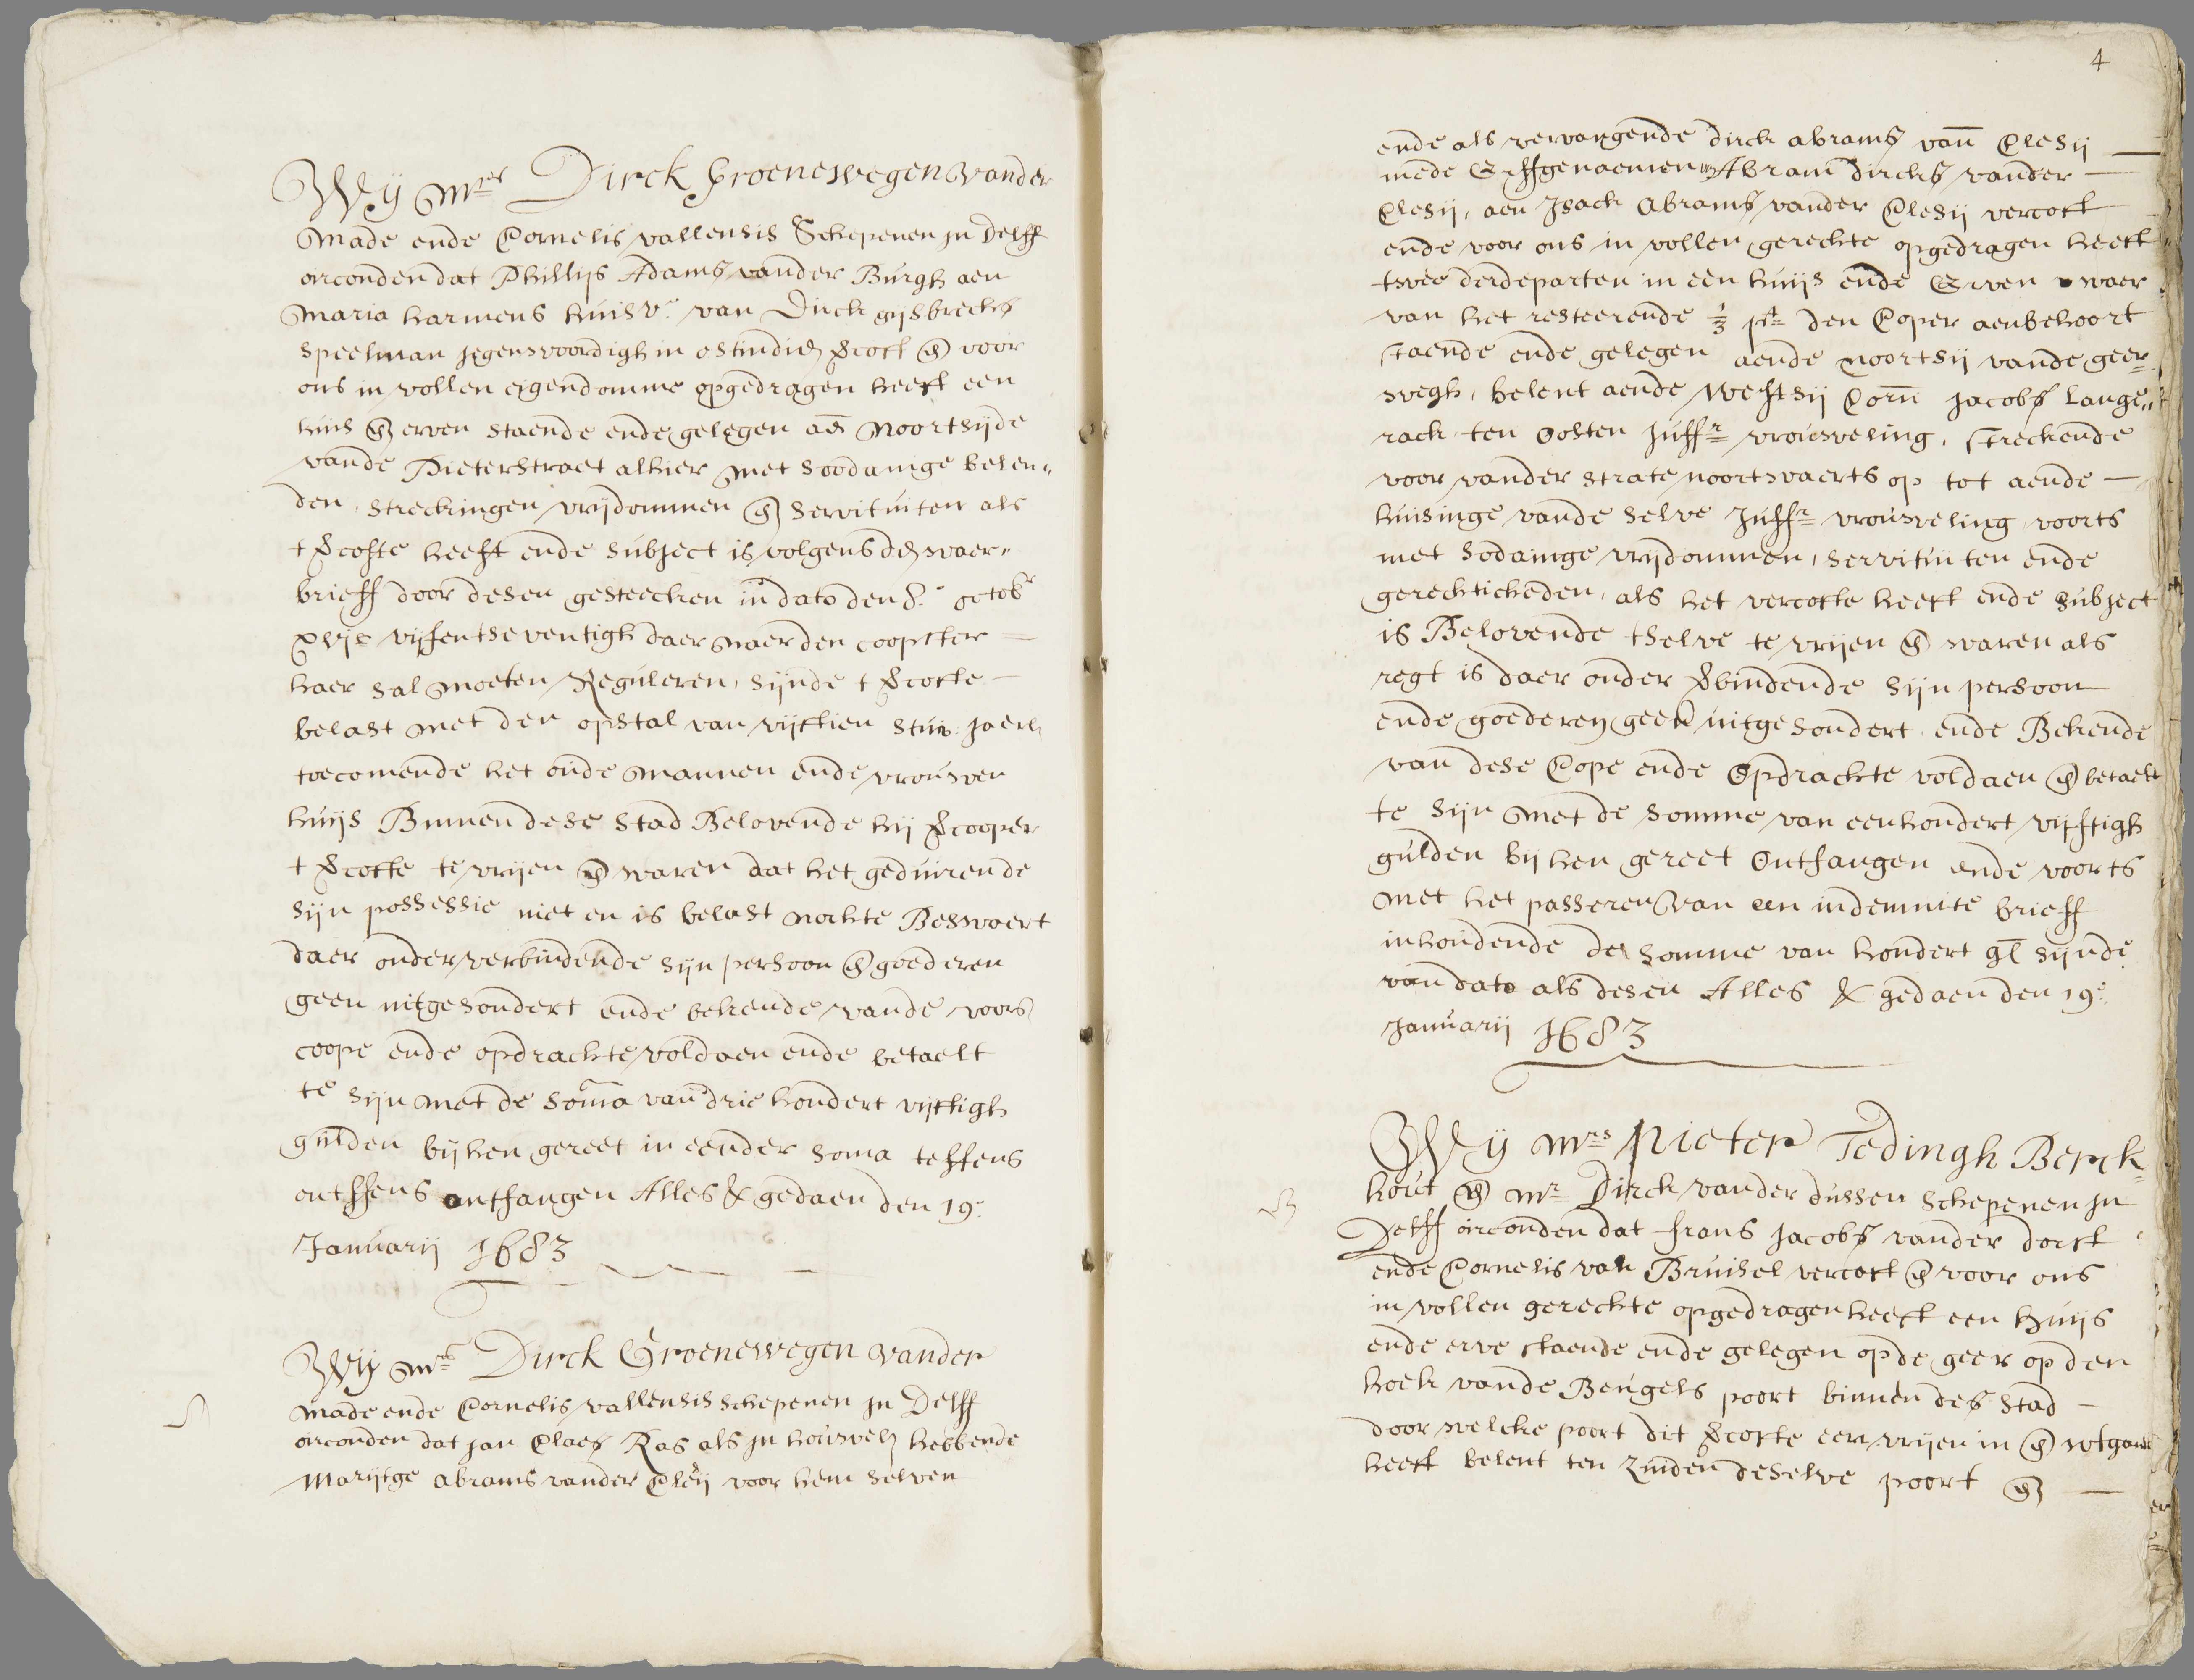 Wij Mrs Dirck Groenewegen vander
Made ende Cornelis vallensis Schepenen in Delff
oirconden dat Phillips Adams vander Burgh aen
Maria harmens huisvr. van Dirck gijsbrechts
Speelman jegenwoordigh in ostindien vercoft en voor
ons in vollen eigendomme opgedragen heeft een
huis en erven staende ende gelegen aen Noortsijde
vande Pieterstraet alhier met Soodanige belen„
den, Streckingen vrijdommen en Servituiten als
t vercofte heeft ende Subject is volgens den waer„
brieff door desen gesteecken in dato den 8.e octobr
xvijc vijfentseventigh daer naer den coopster —
haer Sal moeten Reguleren, Sijnde t vercofte —
belast met den opstal van vijftien Stuv. jaerl.
toecomende het oude Mannen ende vrouwen
huijs Binnen dese Stad Belovende hij vercooper
t vercofte te vrijen en waren dat het geduirende
Sijn possessie niet en is belast nochte Beswaert
daer onder verbindende Sijn persoon en goederen
geen uitgesondert ende bekende vande voors
coope ende opdrachte voldaen ende betaelt
te Sijn met de Soma van drie hondert vijftigh
gulden bij hen gereet in eender Soma teffens
ontffens ontfangen Alles &c gedaen den 19e.
Januarij 1683
Wij Mrs Dirck Groenewegen vander
Made ende Cornelis vallensis Schepenen in Delff
oirconden dat jan Claes Ras als in houwel. hebbende
Marijtge abrams vander Cleij voor hem Selven
4
ende als vervangende dirck abrams van Clesij —
mede Erffgenaemen van Abram dircks vander —
Clesij, aen Isack Abrams vander Clesij vercoft
ende voor ons in vollen gerechte opgedragen heeft
twee derdeparten in een huijs ende Erven waer
van het resteerende 1/3 pt den Coper aenbehoort
staende ende gelegen aende noortsij vande geer
wegh, belent aende Westsij Corn jacobs Lange„
rack ten Oosten Juffr vrouweling, streckende
voor vander Strate noortwaerts op tot aende —
huisinge vande Selve Juffr vrouweling voorts
met Sodainge vrijdommen, Servituiten ende
gerechticheden, als het vercofte heeft ende Subject
is Belovende tselve te vrijen en waren als
regt is daer onder verbindende Sijn persoon
ende goederen geen uitgesondert ende Bekende
van dese Cope ende Opdrachte voldaen en betaelt
te Sijn met de Somme van eenhondert vijftigh
gulden bij hen gereet Ontfangen ende voorts
met het passeren van een indemnite brieff
inhoudende de Somme van hondert gl Sijnde
van dato als desen Alles &c gedaen den 19e.
Januarij 1683
Wij Mrs Pieter Tedingh Berck
hout en Mr Dirck vander dussen Schepenen in
Delff oirconden dat frans jacobs vander dorst
ende Cornelis van Bruisel vercoft en voor ons
in vollen gerechte opgedragen heeft een huijs
ende erve staende ende gelegen op de geer op den
hoek vande Beugels poort binnen des Stad —
door welcke poort dit vercofte een vrijen in en wtganc
heeft belent ten Zuiden deselve poort en —